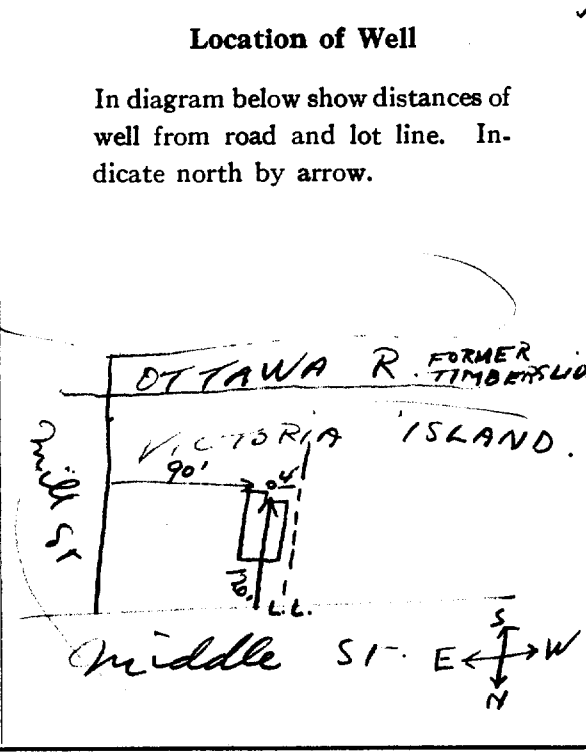 Location of Well
In diagram below show distances of
well from road and lot line. In-
dicate north by arrow.
OTTAWA R. FORMER
TIMBERSLID
VICTORIA ISLAND.
90'
Mill St
120'
L.L.
Middle St.
S
E W
N